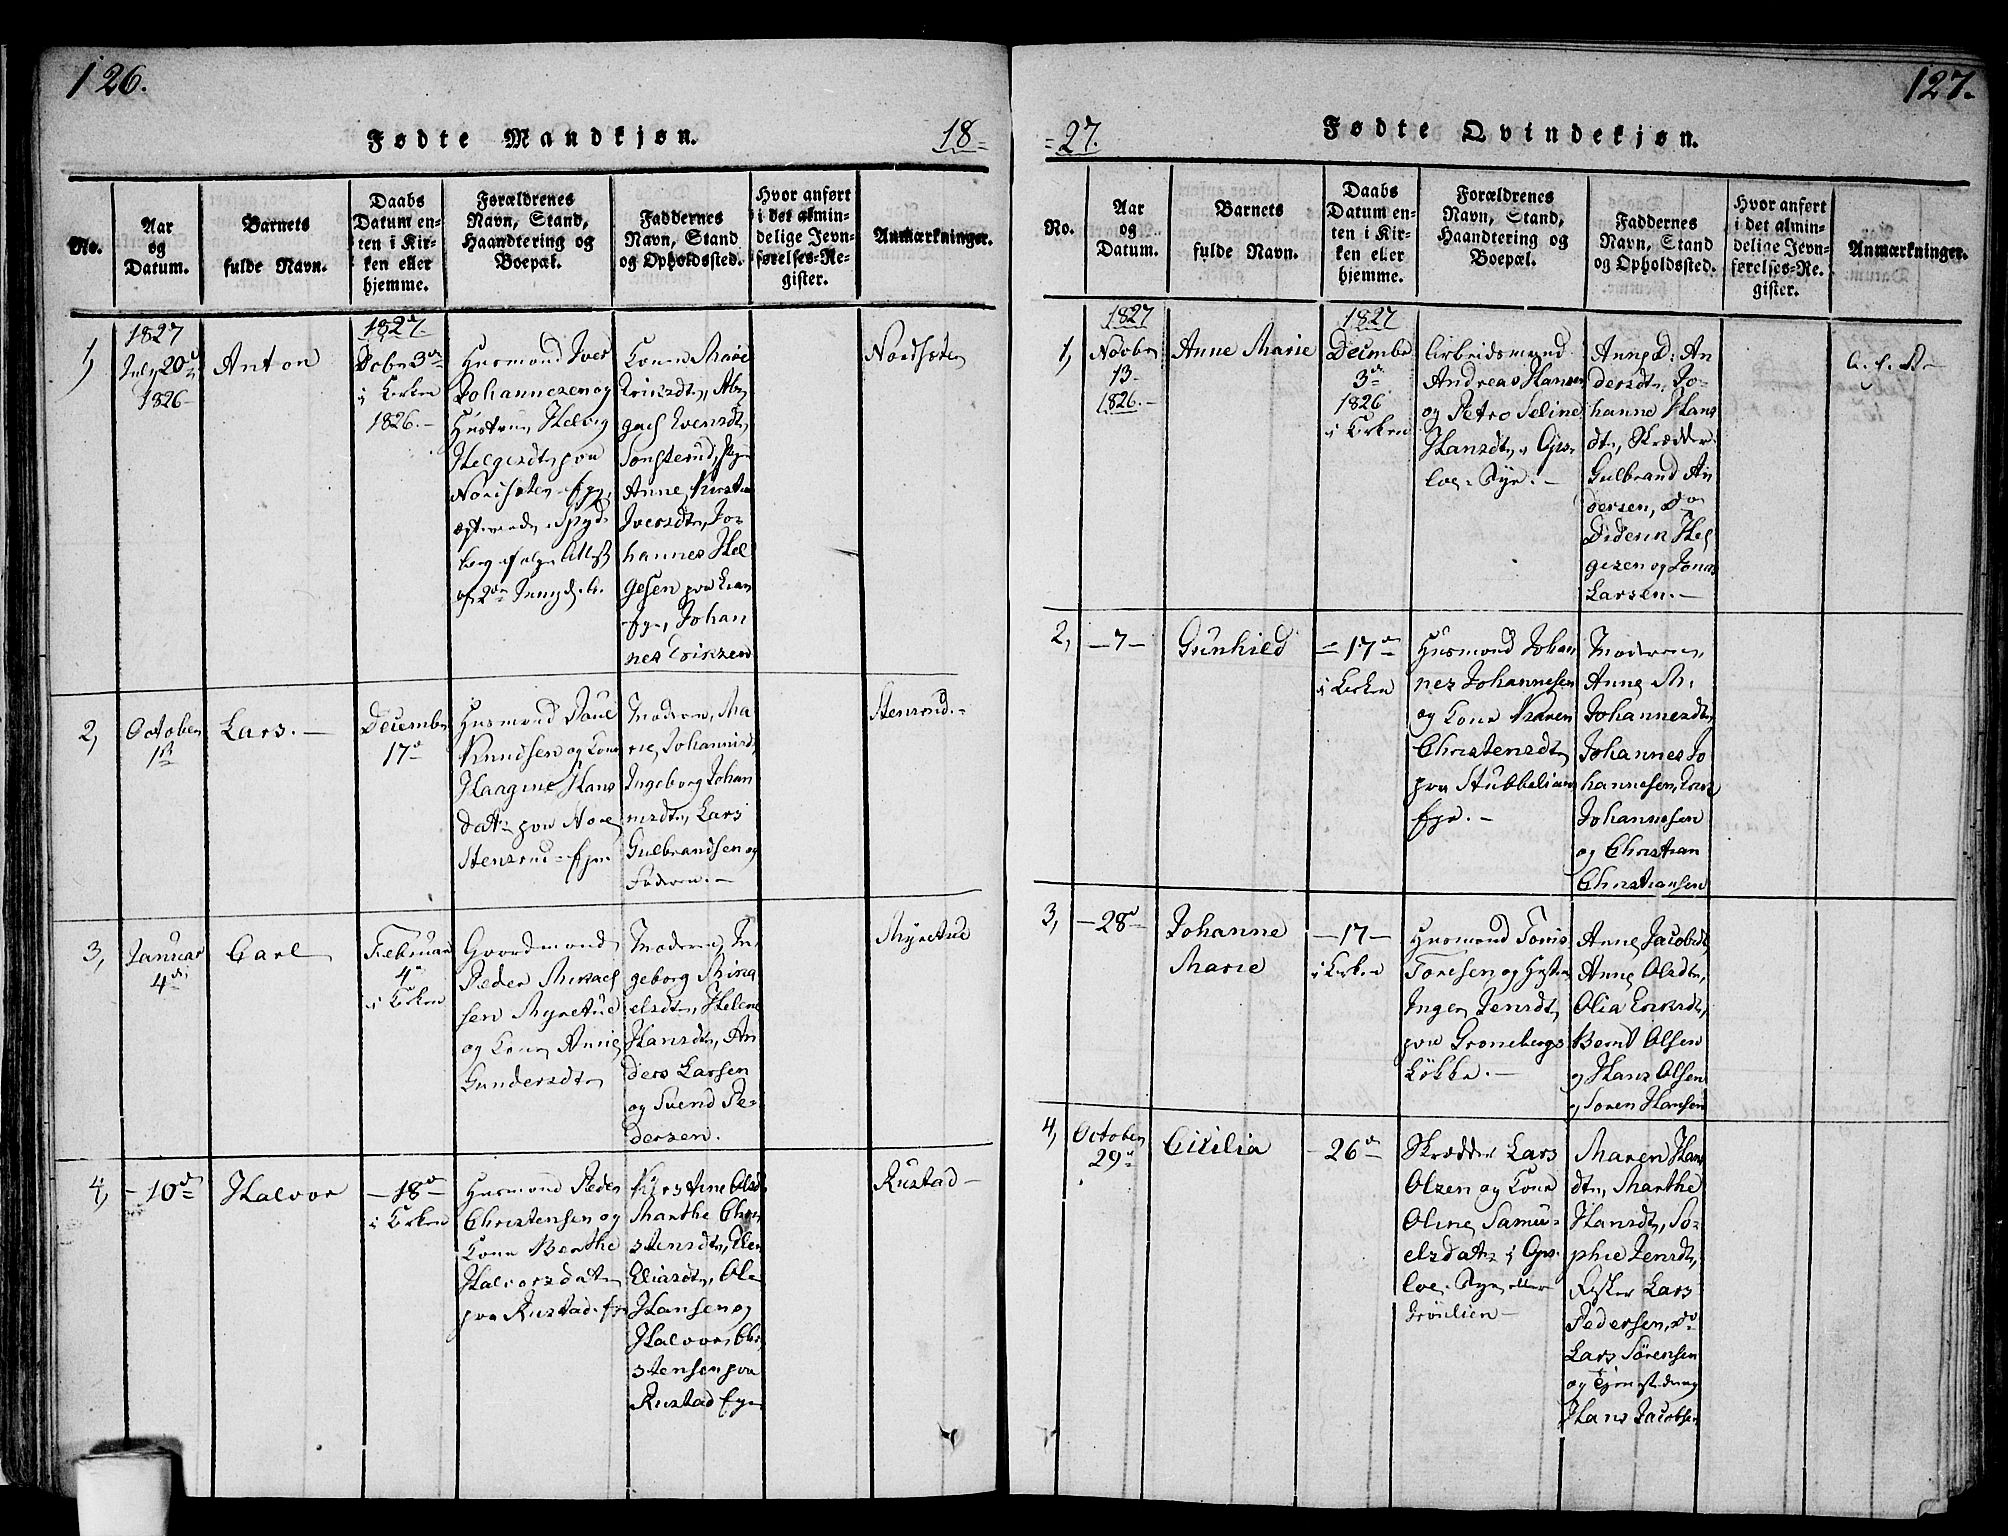 126.
Fødte Mandkjøn.
18=
No.
Aar
og
Datum.
Barnets
fulde Navn.
Daabs
Datum en-
ten i Kir-
ken eller
hjemme.
Forældrenes
Navn, Stand,
Haandtering og
Boepæl.
Faddernes
Navn, Stand
og Opholdssted.
Hvor anført
i det almin-
delige Jevn-
førelses-Re-
gister.
Anmærkninger.
1,
1827
July 20
1826
Anton
1827.
3
i Kirken
1826.-
Husmand Iver
Johannesen og
Hustrue Helvig
Helgesdtr paa
Nordsæter
Spyd
berg
Kone Marie
Eriksdtr,
Evensdtr
Sonsterud,
Anne Kirstine
Iversdtr, Jo-
hannes Hel
gesen paa
Johan
nes Eriksen
Nordsæter
2,
October
1
Lars.-
December
17
Husmand Paul
Knudsen og Kone
Haagine Hans
datr paa Nore
Stensrud
Moderen, Ma-
rie Johannesd,
Ingeborg Johan
nesdtr, Lars
Gulbrandsen og
Faderen.-
Stensrud.-
3,
Januar
4
Carl
Februar
4
i Kirken
Gaardmand
Peder Mikael
sen Myretue
og Kone Anne
Gundersdtr
Moderen, In
geborg Mika
elsdtr, Helene
Hansdtr, An
ders Larsen
og Svend Pe-
dersen.
Myretue
4,
-10
Halvor
-18-
i Kirken
Husmand Peder
Christensen og
Kone Berthe
Halvorsdatr
paa Rustad
Kirstine Olsdtr
Marthe Chri
stensdtr,
Eliasdtr, Ole
Hansen og
Halvor Chri
stensen paa
Rustad
Rustad-
127.
=27.
Fødte Qvindekjøn.
No.
Aar
og
Datum.
Barnets
fulde Navn.
Daabs
Datum en-
ten i Kir-
ken eller
hjemme.
Forældrenes
Navn, Stand,
Haandtering og
Boepæl.
Faddernes
Navn, Stand
og Opholdssted.
Hvor anført
i det almin-
delige Jevn-
førelses-Re-
gister.
Anmærkninger.
1,
1827
Novbr
13-
1826.-
Anne Marie
1827
Decembr
3
1826
i Kirken
Arbeidsmand
Andreas Hansen
og Petro Seline
Hansdtr
Anne D: An
dersdtr, Jo-
hanne Hans
dtr, Skrædder
Gulbrand An
dersen, do
Diderik Hel
gesen og Jonas
Larsen.-
2,
-7-
Gunhild
=17
i Kirken
Husmand Johan
nes Johannesen
og Kone Karen
Christensdtr
paa Stubbelien
Moderen,
Anne M.
Johannesdtr,
Johannes Jo
hannesen, Lars
Johannesen
og Christian
Christiansen
3,
-28
Johanne
Marie
-17-
i Kirken
Husmand Tonis
Toresen og Hustru
Inger Jensdtr
paa Gronebergs
Løkke.-
Anne Jacobsdtr,
Anne Olsdtr,
Olia Eriksdtr,
Bernt Olsen
og Hans Olsen
og Soren Hansen
4,
October
29
Cicilia
-26
Skrædder Lars
Olsen og Kone
Oline Samu-
elsdatr i
eller
Maren Hans
dtr, Marthe
Hansdtr, So-
phie Jensdtr,
Lars
Pedersen, do
Lars Sørensen
og
Hans Jacobsen